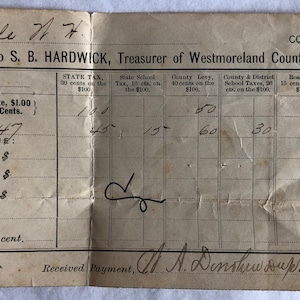 W. H.
CO
o S. B. HARDWICK, Treasurer of Westmoreland Count
STATE TAX, 30 cents on the $100.
State School Tax, 10 cts. on the $100.
County Levy, 40 cents on the $100.
County & District School Taxes, 20 cts. on the $100.
Roa 15 cent the $
te, $1.00 Cents. } 1 00 50
47 45 15 60 30
E
$
$
$
cent.
Received Payment, W. A. Donahew Dep